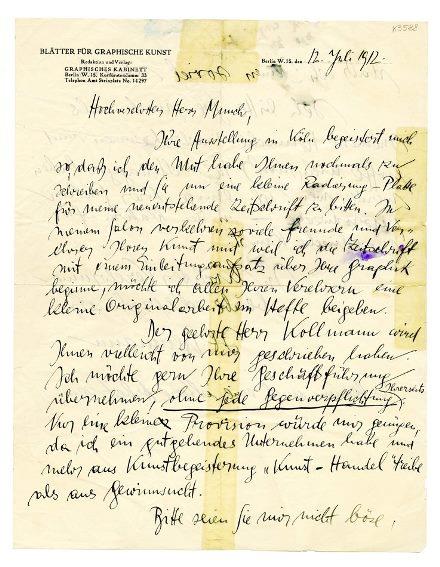 K3588
BLÄTTER FÜR GRAPHISCHE KUNST
Redaktion und Verlag:
GRAPHISCHES KABINETT
Berlin W. 15, Kurfürstendamm 33
Telephon Amt Steinplatz No. 14297
Berlin W. 15, den 12. Juli 1912.
Hochverehrter Herr Munch,
Ihre Ausstellung in Köln begeistert mich
so, daß ich den Mut habe Ihnen nochmals zu
schreiben und Sie um eine kleine Radierungs-Platte
für meine neuentstehende Zeitschrift zu bitten. In
meinem Salon verkehren soviele Freunde und Ver-
ehrer Ihrer Kunst und weil ich die Zeitschrift
mit einem Einleitungsaufsatz über Ihre Graphik
beginne, möchte ich allen Ihren Verehrern eine
kleine Originalarbeit im Hefte beigeben.
Der geehrte Herr Kollmann wird
Ihnen vielleicht von mir geschrieben haben.
Ich möchte gern Ihre Geschäftsführung
übernehmen, ohne jede Gegenverpflichtung Ihrerseits
Nur eine kleine Provision würde mir genügen,
da ich ein gutgehendes Unternehmen habe und
mehr aus Kunstbegeisterung „Kunst-Handel" treibe
als aus Gewinnsucht.
Bitte seien Sie mir nicht böse,